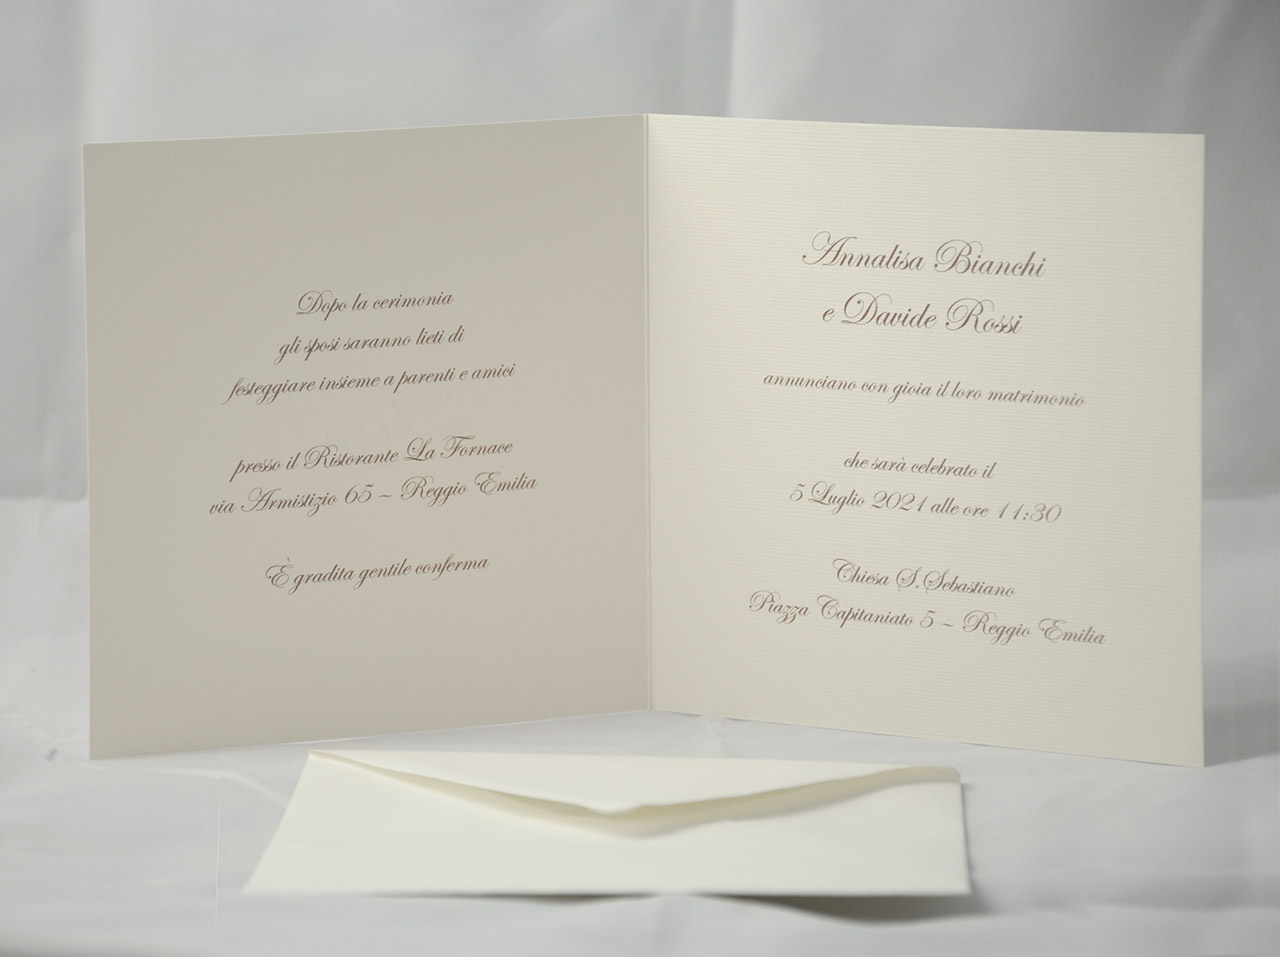 Dopo la cerimonia
gli sposi saranno lieti di
festeggiare insieme a parenti e amici
presso il Ristorante La Fornace
via Armistizio 65 – Reggio Emilia
È gradita gentile conferma
Annalisa Bianchi
e Davide Rossi
annunciano con gioia il loro matrimonio
che sarà celebrato il
5 Luglio 2021 alle ore 11:30
Chiesa S.Sebastiano
Piazza Capitaniato 5 – Reggio Emilia